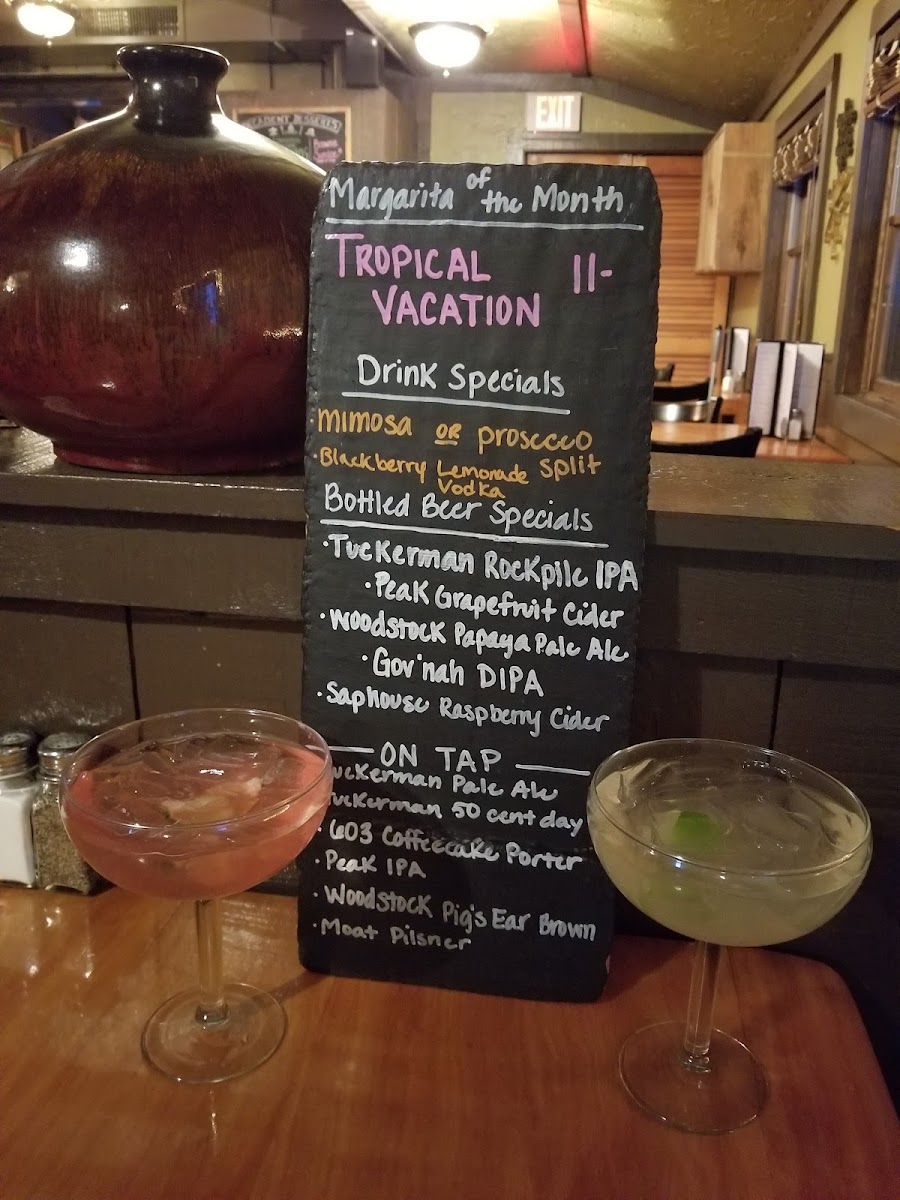 EXIT
DECADENT DESSERTS
Margarita of the Month
TROPICAL 11-
VACATION
Drink Specials
·mimosa OR prosecco split
·Blackberry Lemonade
Vodka
Bottled Beer Specials
·Tuckerman Rockpile IPA
·Peak Grapefruit Cider
·Woodstock Papaya Pale Ale
·Gov'nah DIPA
·Saphouse Raspberry Cider
ON TAP
Tuckerman Pale Ale
Tuckerman 50 cent day
·603 Coffeecake Porter
·Peak IPA
·Woodstock Pig's Ear Brown
·Moat Pilsner